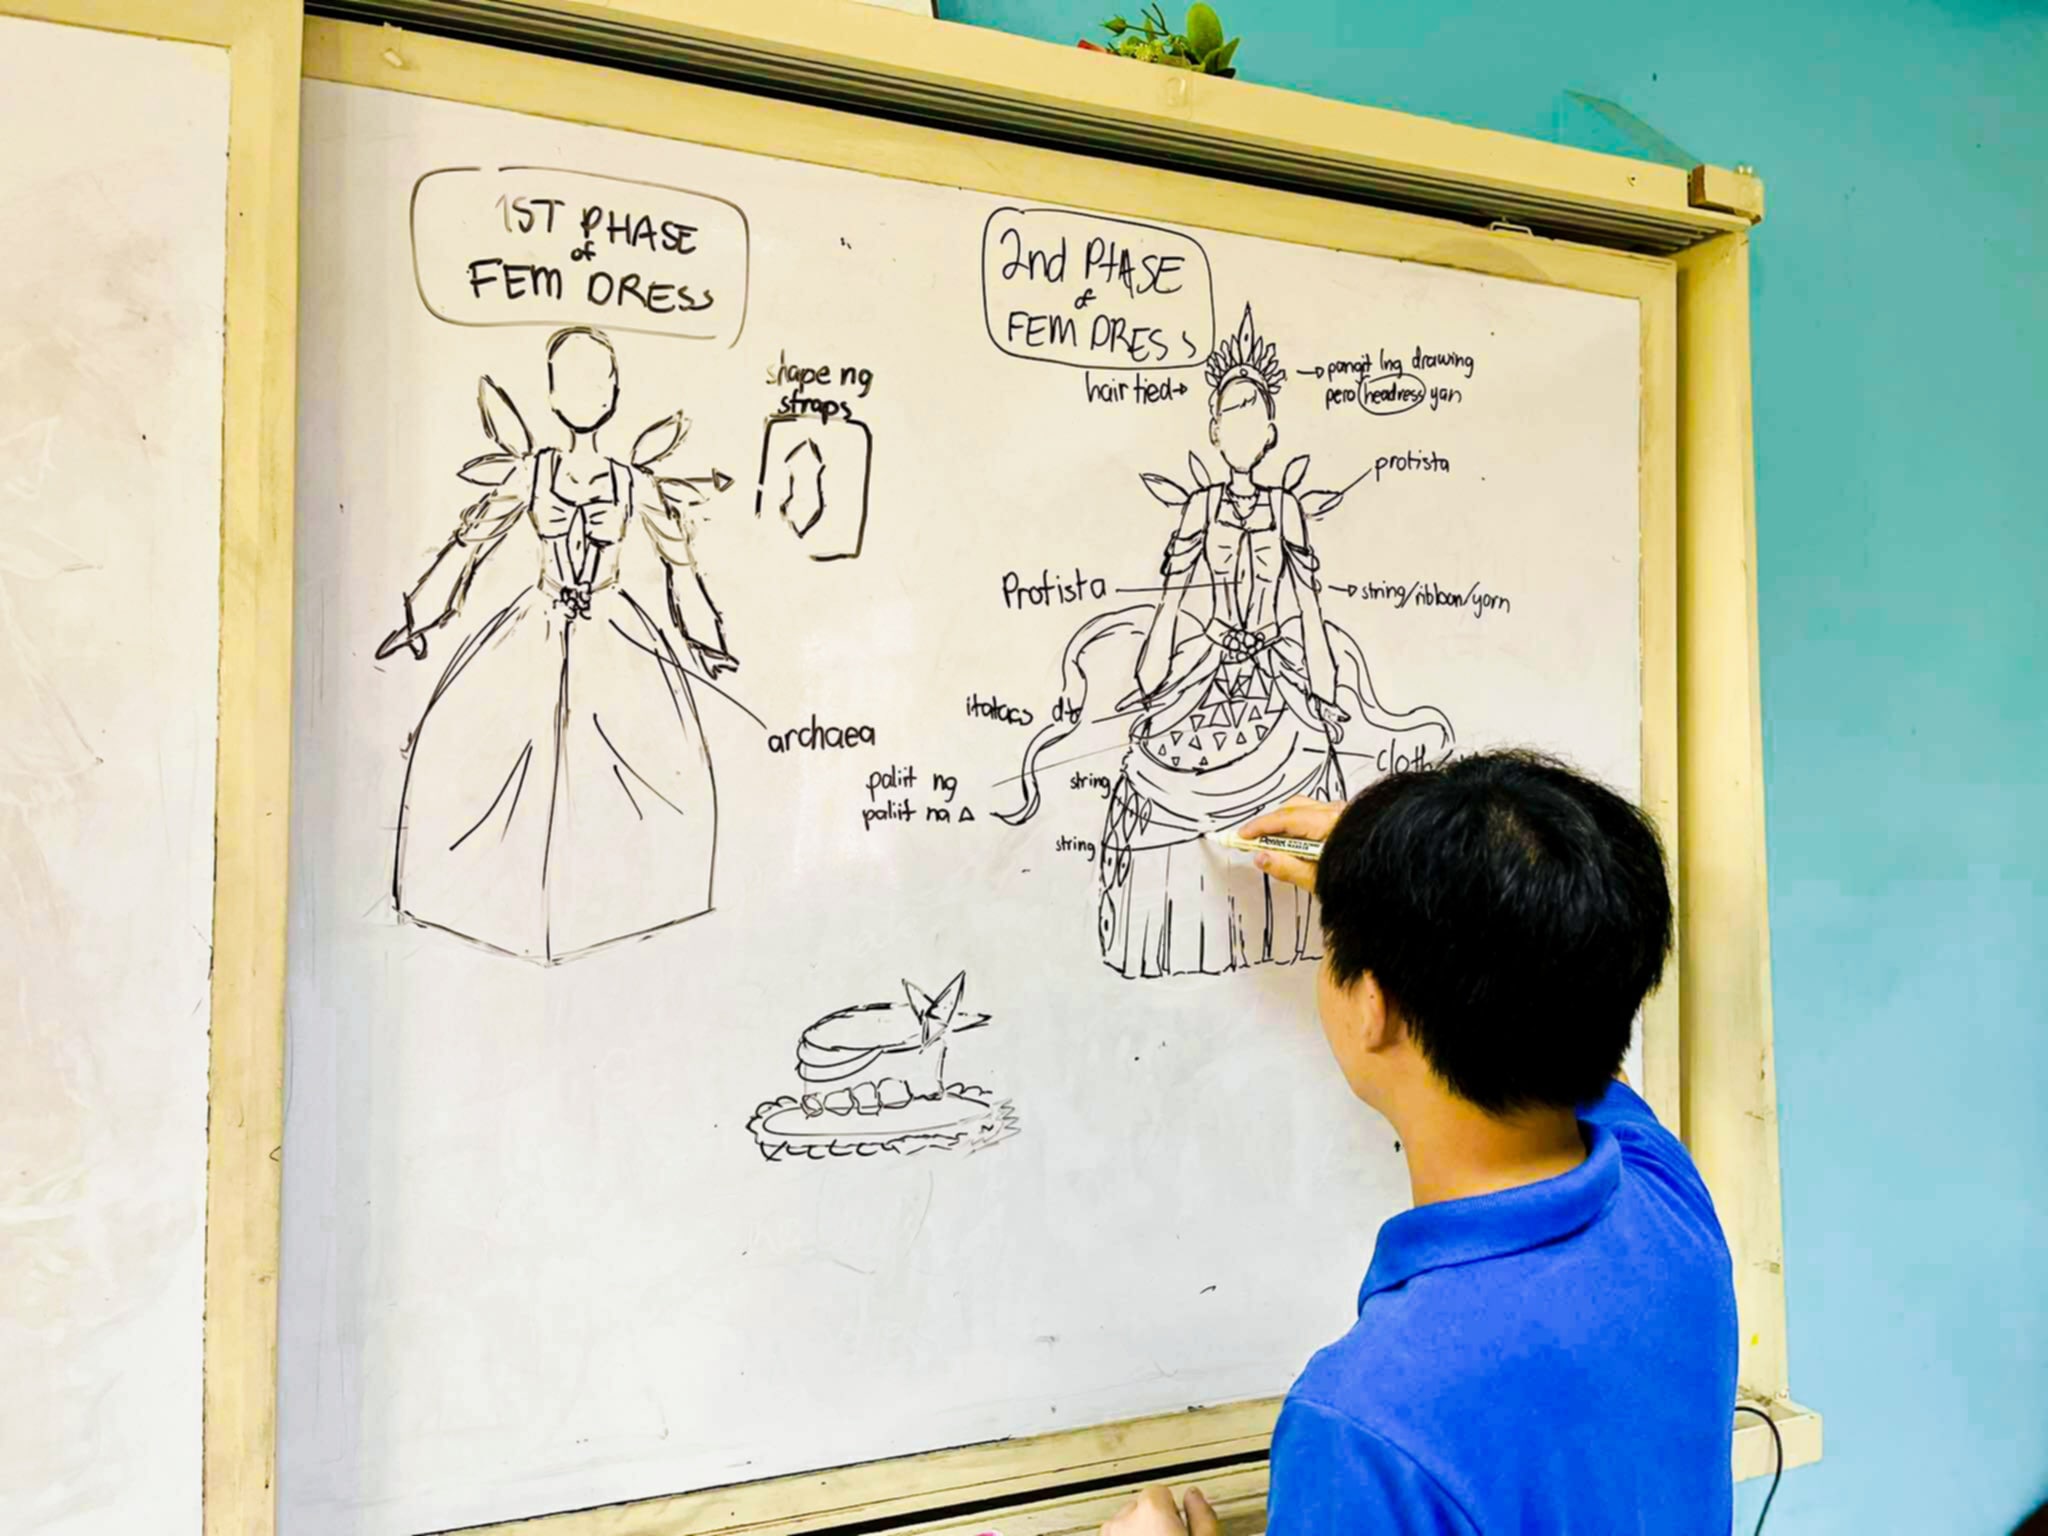 1ST PHASE
of
FEM DRESS
shape ng
straps
archaea
2nd PHASE
of
FEM DRESS
hair tied
pangit lng drawing
pero headress yan
protista
Protista
string/ribbon/yarn
itataas dto
cloth
paliit ng
paliit na
string
string